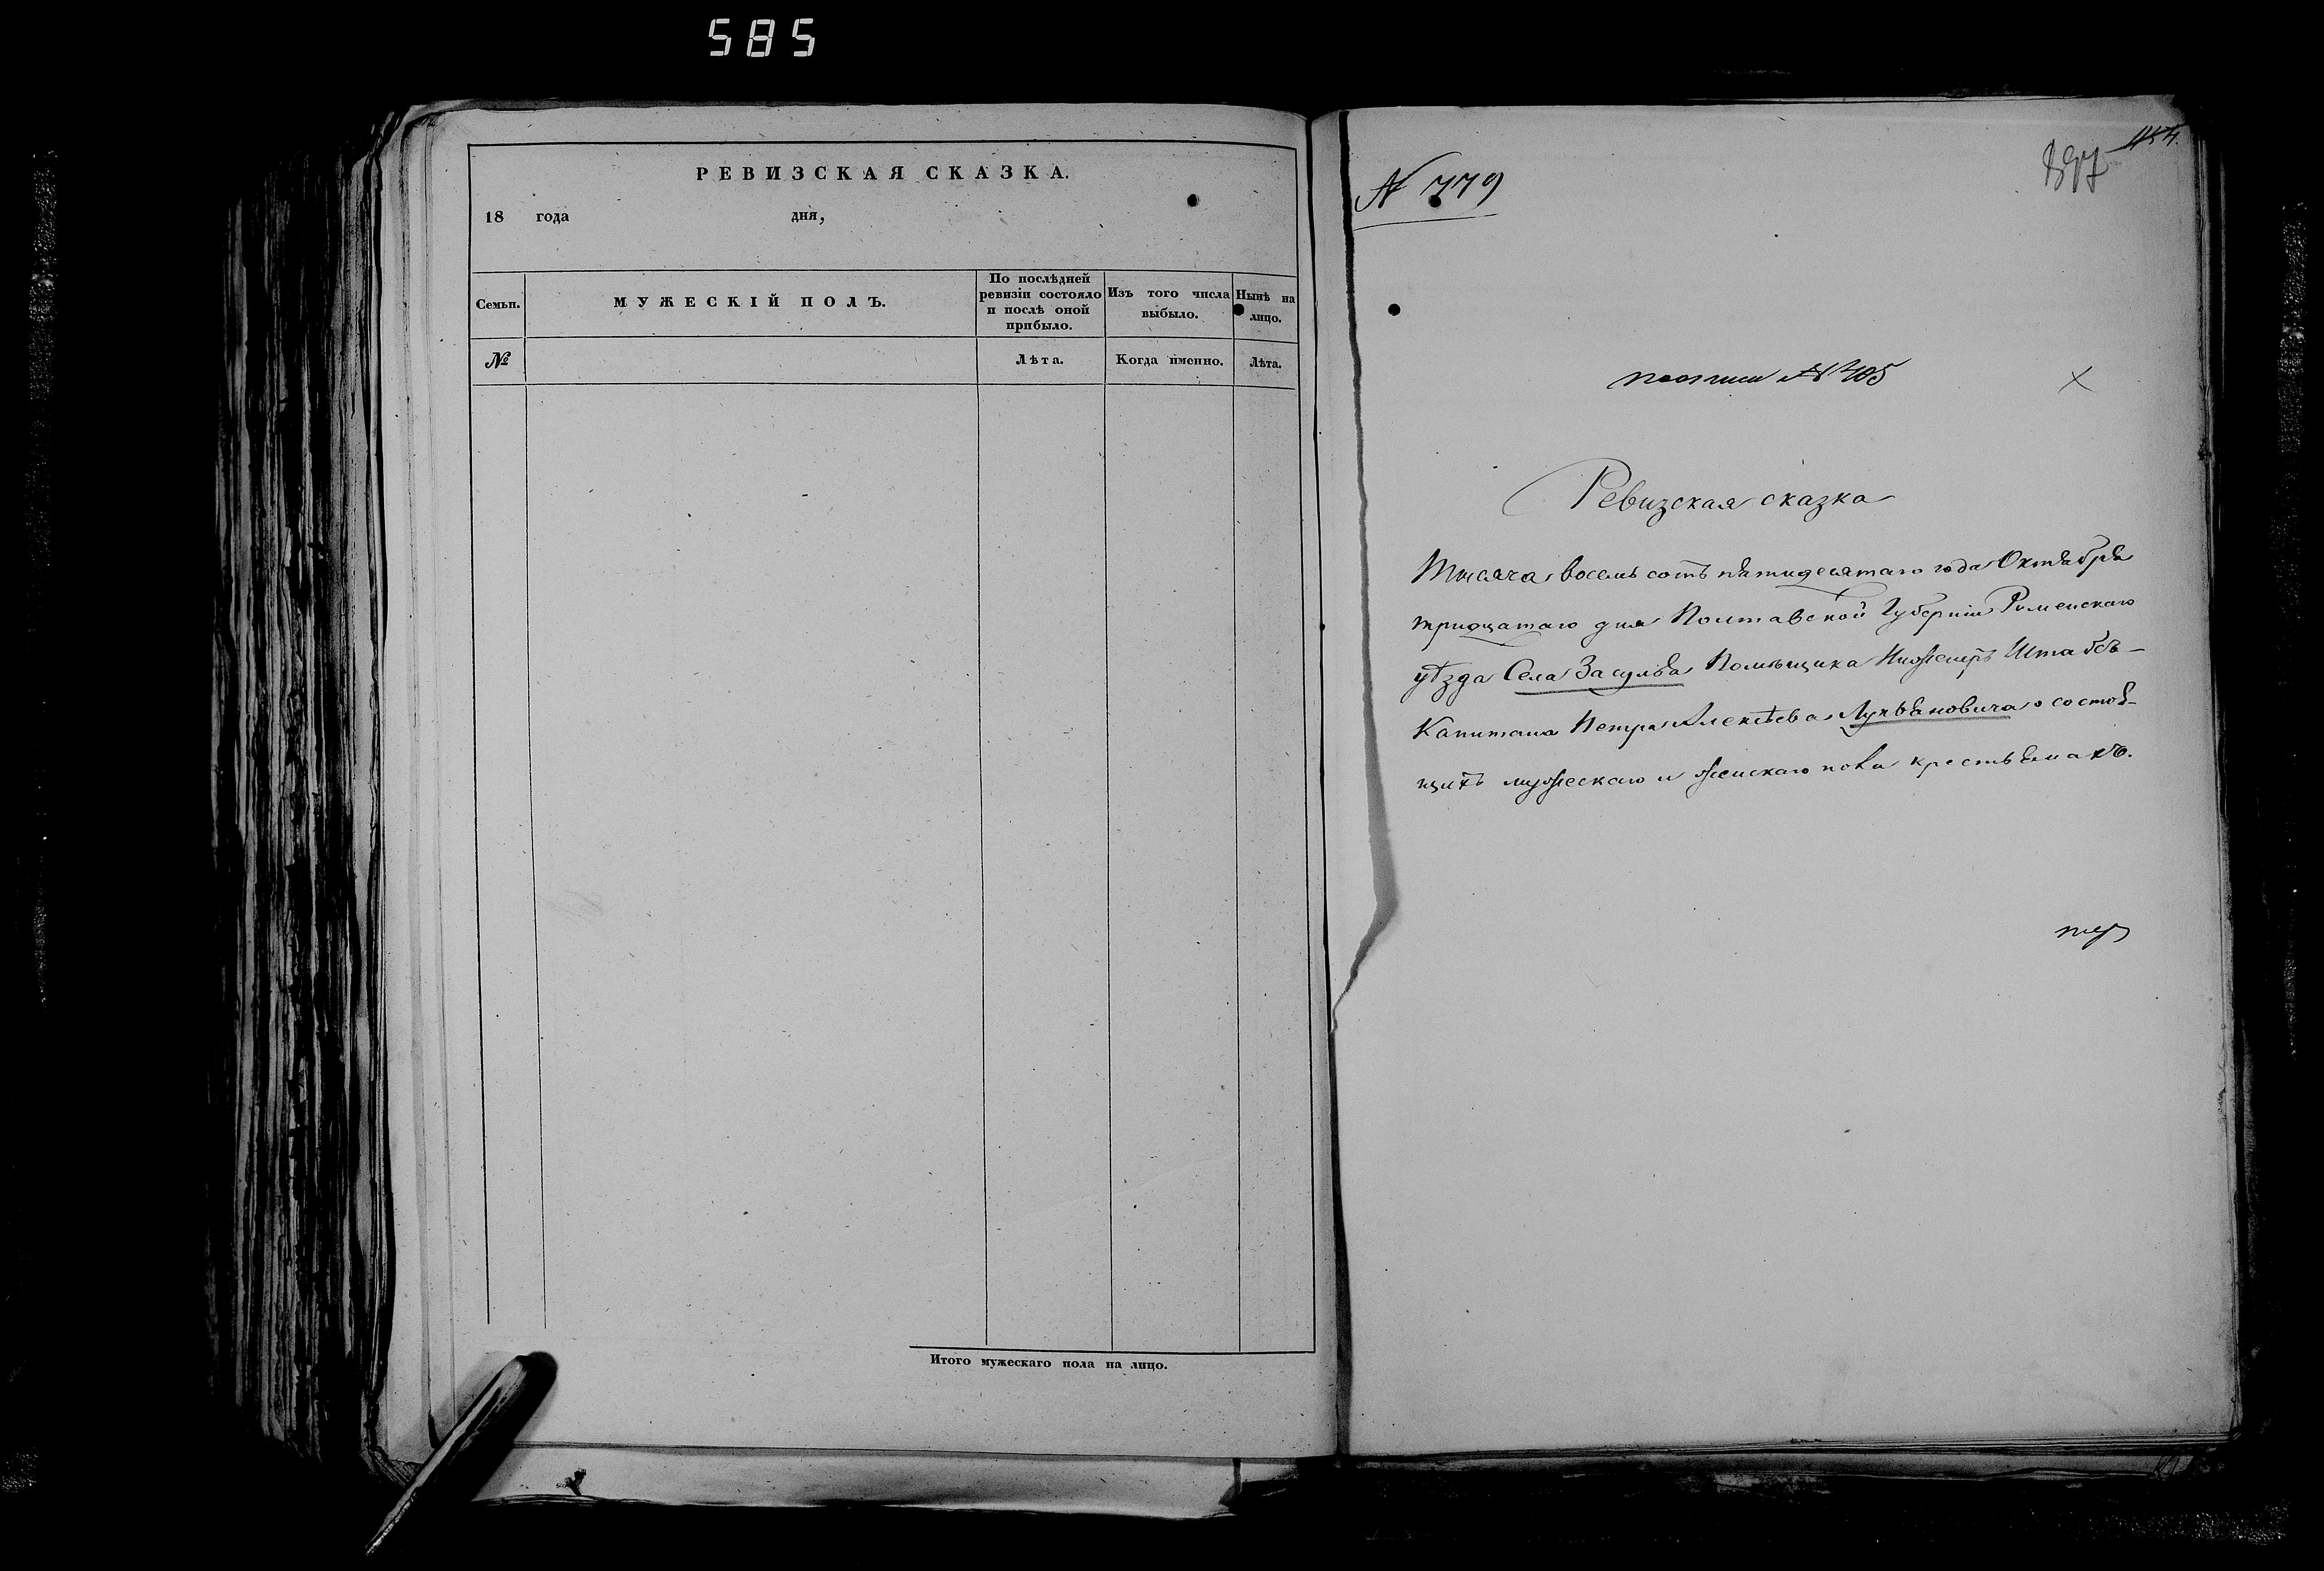 585
РЕВИЗСКАЯ СКАЗКА.
18 года дня,
Семьи.
МУЖЕСКІЙ ПОЛЪ.
По послѣдней ревизіи состояло и послѣ оной прибыло.
Изъ того числа выбыло.
Нынѣ на лицо.
№
Лѣта.
Когда именно.
Лѣта.
Итого мужескаго пола на лицо.
N 779
897
№ 405
Ревизская сказка
Тысяча восемь сотъ пятидесятаго года Октября
тридцатаго дня Полтавской Губерніи Роменскаго
уѣзда Села Засулья Помѣщика Инженеръ Штабсъ-
Капитана Петра Алексѣева Лукьяновича о состоя-
щихъ мужескаго и женскаго пола крестьянахъ.